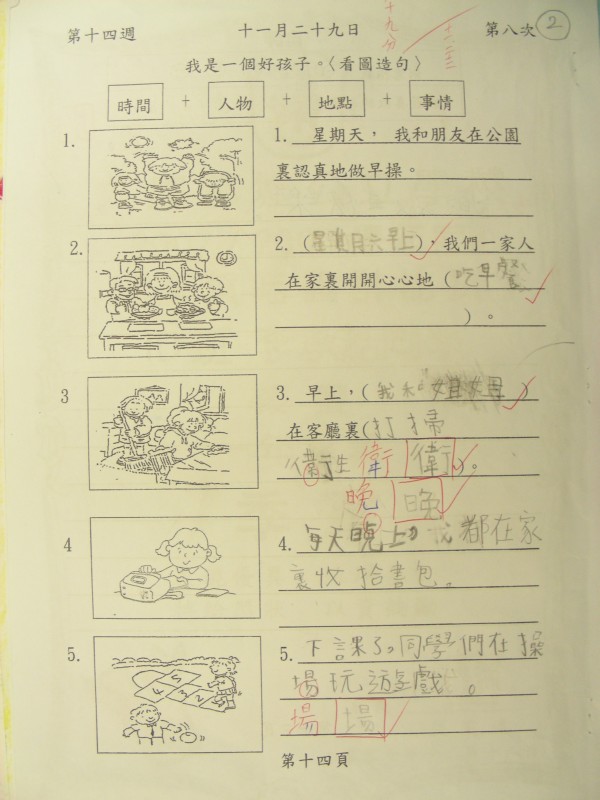 第十四週 十一月二十九日 第八次 2
十九分
十二三
我是一個好孩子。〈看圖造句〉
時間 + 人物 + 地點 + 事情
1. 1. 星期天，我和朋友在公園
裏認真地做早操。
2. 2. (星期六早上)，我們一家人
在家裏開開心心地(吃早餐
)。
3 3. 早上，(我和姐姐)
在客廳裏(打掃
衛生 衛 衛)。
晚 晚
4 4. 每天晚上，我都在家
裏收拾書包。
5. 5. 下課了，同學們在操
場玩遊戲。
場 場
第十四頁